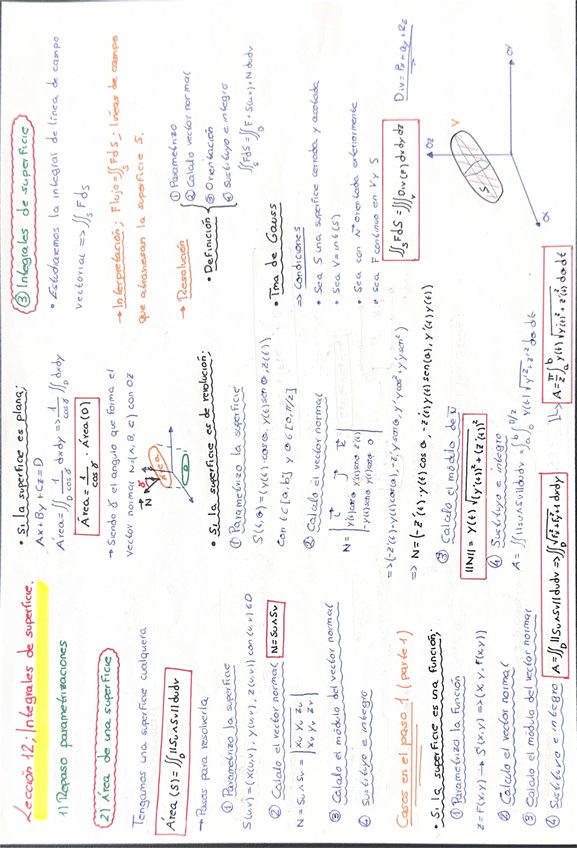 Lección 12; Integrales de superficie.
1) Repaso parametrizaciones
2) Área de una superficie
Tengamos una superficie cualquiera
Área (S) = ∬_D ||Su∧Sv|| dudv
→ Pasos para resolverla
① Parametrizo la superficie
S(u,v) = (x(u,v), y(u,v), z(u,v)) con (u,v) ∈ D
② Calculo el vector normal N = Su∧Sv
N = Su∧Sv = | xu yu zu
xv yv zv |
③ Calculo el módulo del vector normal
④ Sustituyo e integro
Casos en el paso 1 (parte 1)
• Si la superficie es una función;
① Parametrizo la función
z = f(x,y) → S(x,y) => (x, y, f(x,y))
② Calculo el vector normal
③ Calculo el módulo del vector normal
④ Sustituyo e integro A = ∬_D ||Su∧Sv|| dudv => ∬_D √(fx²+fy²+1) dxdy
• Si la superficie es plana;
Ax + By + Cz = D
Área = ∬_D 1/cosγ dxdy => 1/cosγ ∬_D dxdy
Área = 1/cosγ · Área(D)
→ Siendo γ el angulo que forma el
vector normal N(A, B, C) con OZ
N
γ
D
• Si la superficie es de revolución;
① Parametrizo la superficie
S(t,θ) = (y(t)·cosθ, y(t)senθ, z(t))
Con t ∈ [a,b] y θ ∈ [0, π/2]
② Calculo el vector normal
③ Calculo el módulo de
||N|| = y(t) √((y'(t))² + (z'(t))²)
④ Sustituyo e integro
③ Integrales de superficie
• Estudiaremos la integral de línea de campo
vectorial => ∬_S FdS
→ Interpretación; Flujo = ∬_S FdS; líneas de campo
que atraviesan la superficie S.
→ Resolución
• Definición
① Parametrizo
② Calculo vector normal
③ Orientación
④ Sustituyo e integro
∬_S FdS = ∬_D F·S(u,v)·N dudv
• Tma de Gauss
=> Condiciones
• Sea S una superficie cerrada y acotada
• Sea V = int(S)
• Sea con N orientada exteriormente
• Sea F continuo en V y S
∬_S FdS = ∭_V Div(F) dxdydz
Div = Px + Qy + Rz
OZ
V
S